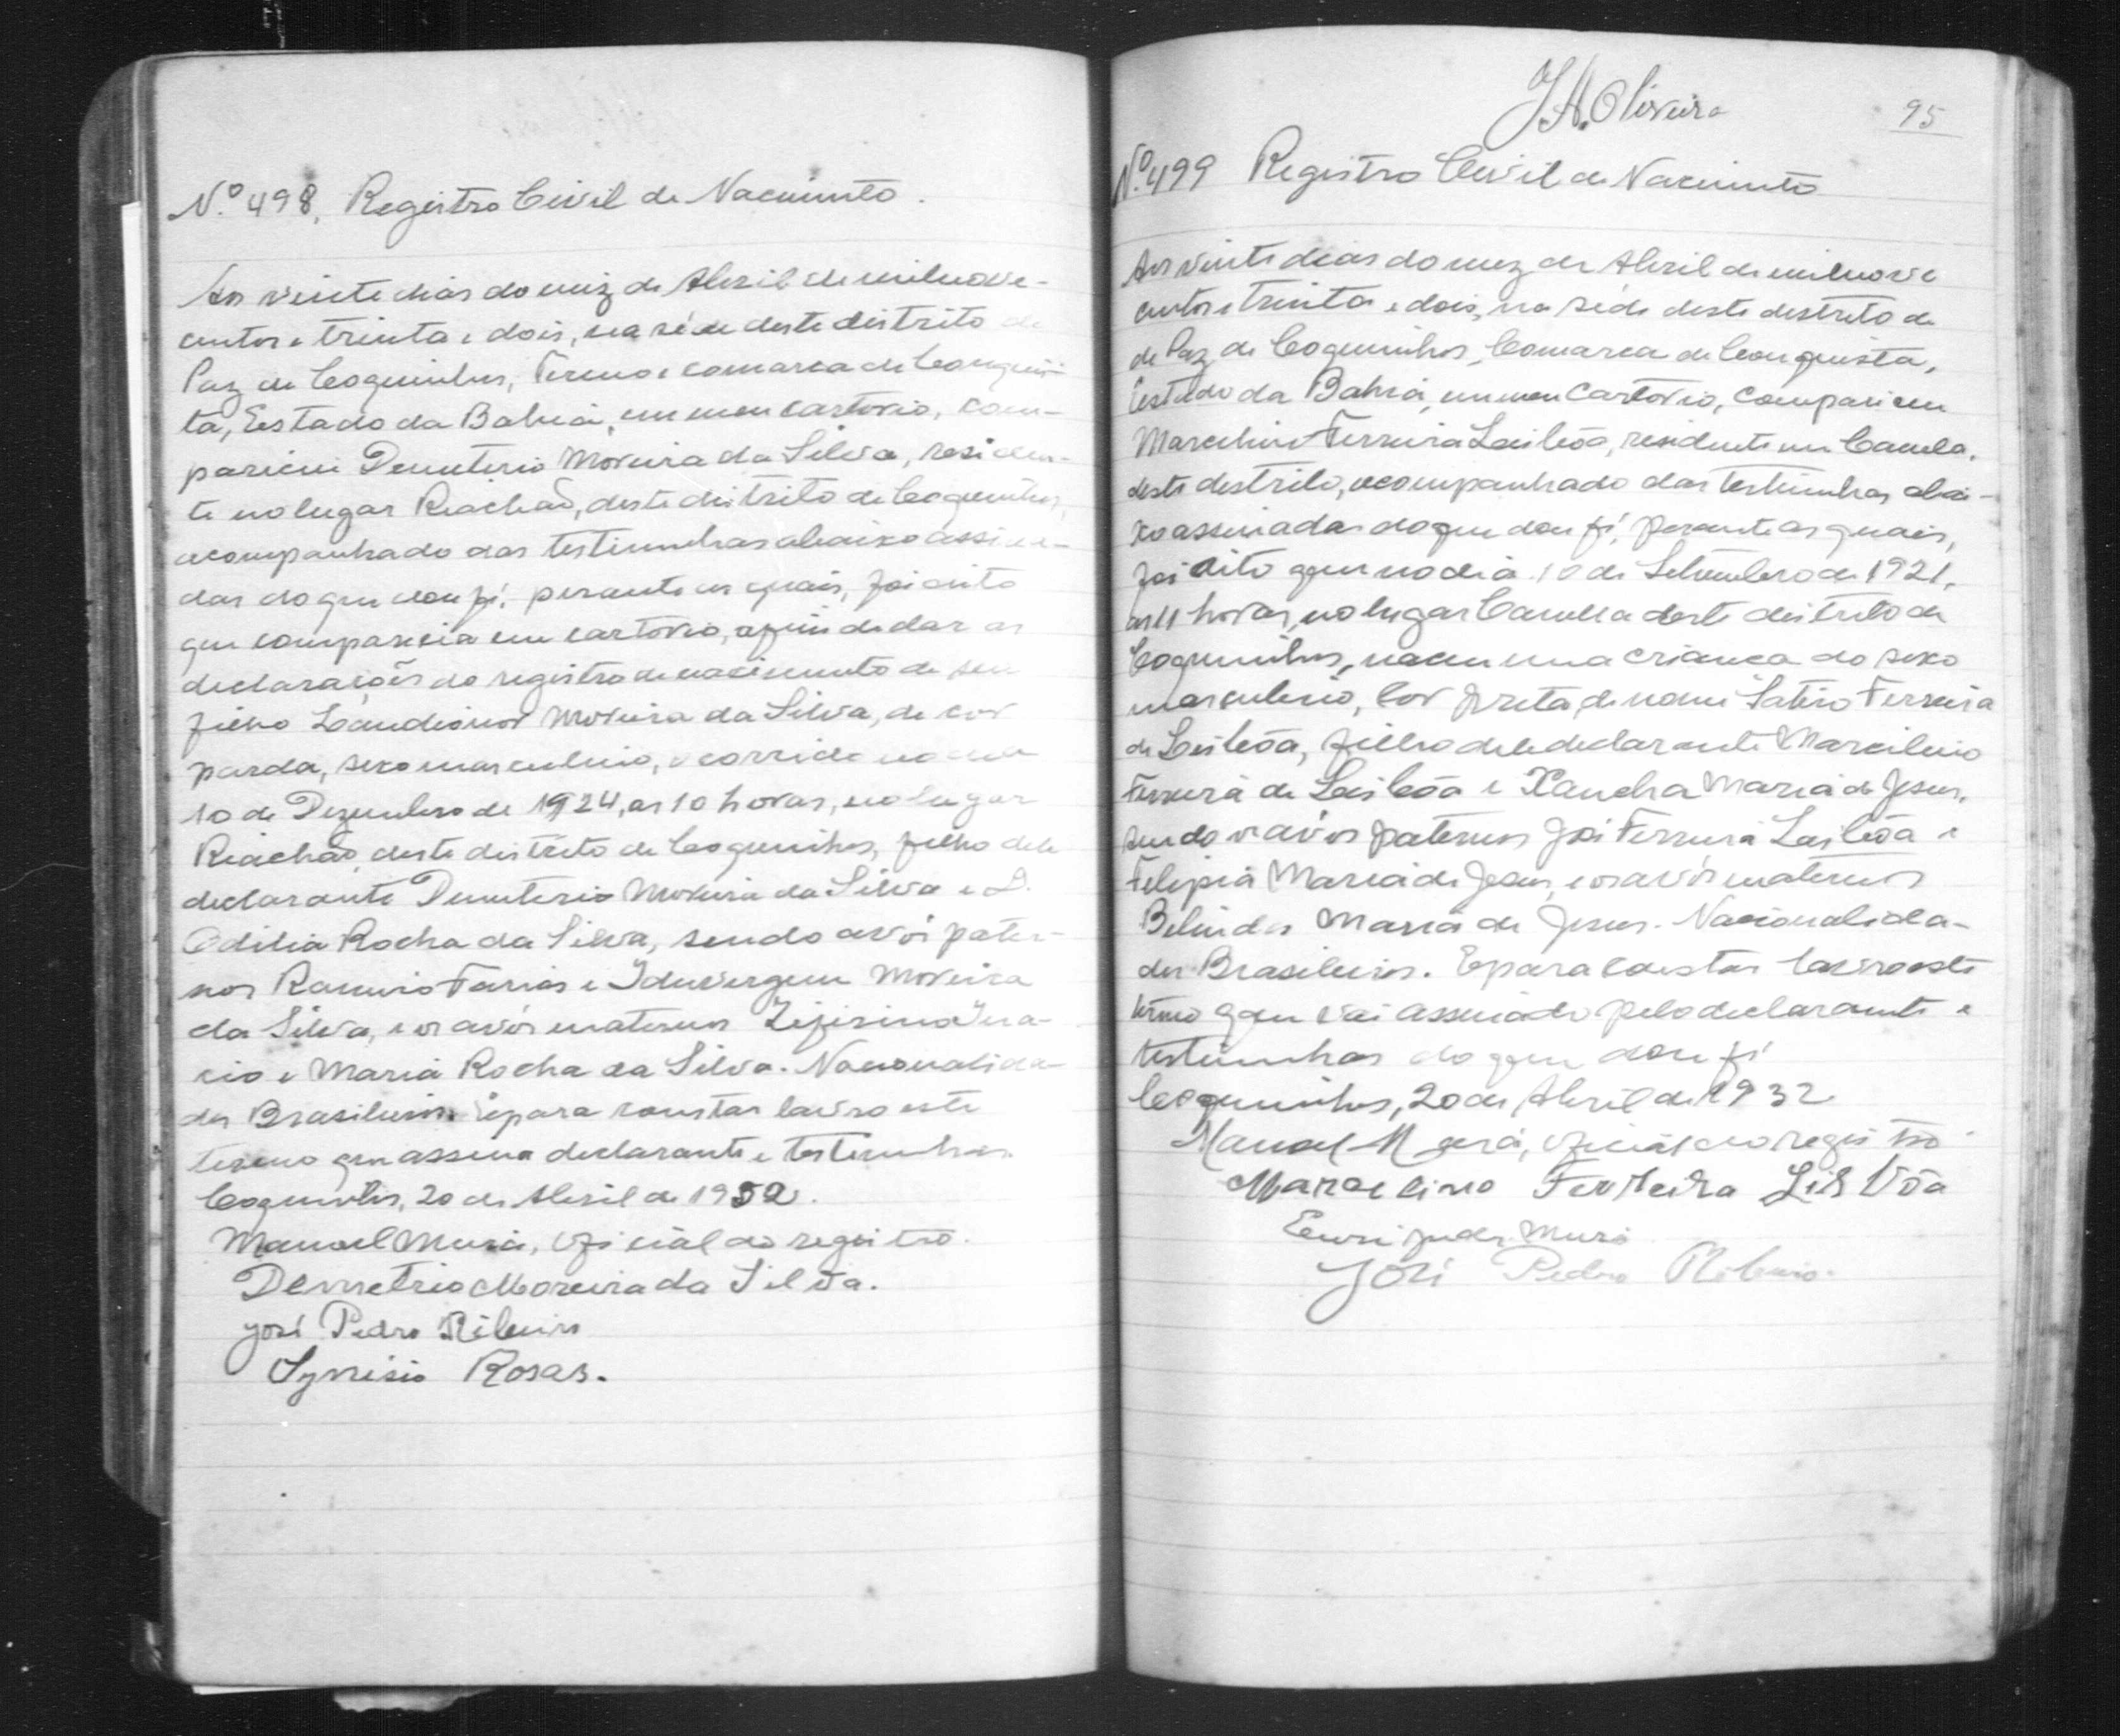 Nº 498, Registro Civil de Nacimento.
Aos vinte dias do mez de Abril de mil nove-
centos e trinta e dois, na séde deste distrito de
Paz de Coquinhos, Termo e comarca de Conquis-
ta, Estado da Bahia, em meu cartorio, com-
pariceu Demeterio Moreira da Silva, residen-
te no lugar Riachão, deste distrito de Coquinhos,
acompanhado das testimunhas abaixo assina-
das do que dou fé, perante as quais, foi dito
que comparicia em cartorio, afim de dar as
declarações do registro de nacimento de seu
filho Laudionor Moreira da Silva, de cor
parda, sexo masculino, ocorrido no dia
10 de Dezembro de 1924, as 10 horas, no lugar
Riachão, deste distrito de Coquinhos, filho dele
declarante Demeterio Moreira da Silva e D.
Odilia Rocha da Silva, sendo avós pater-
nos Ramiro Farias e Moreira
da Silva, e os avós maternos Zifirino Ina-
cio e Maria Rocha da Silva. Nacionalida-
des Brasileiros. E para constar lavro este
termo que assina declarante e testimunhas.
Coquinhos, 20 de Abril de 1932.
Manoel Murá, oficial do registro.
Demetrio Moreira da Silva.
José Pedro Ribeiro
Synisio Rosas.
J. A. Oliveira 95
Nº 499 Registro Civil de Nacimento
Aos vinte dias do mez de Abril de mil nove
centos e trinta e dois, na séde deste distreto de
de Paz de Coquinhos, Comarca de Conquista,
Estado da Bahia, em meu Cartorio, compariceu
Marcelino Ferreira Lisbôa, residente em Canela,
deste destrito, acompanhado das testimunhas abai-
xo assinadas do que dou fé, perante as quais,
foi dito que no dia 10 de Setembro de 1921,
as 11 horas, no lugar Canella deste distrito de
Coquinhos, naceu uma criança do sexo
masculino, Cor preta, de nome Satiro Ferreira
de Lisbôa, filho dele declarante Marcilino
Ferreira de Lisbôa e Xancha Maria de Jesus,
sendo os avós paternos José Ferreira Lisbôa e
Felipia Maria de Jesus, e os avós maternos
Belinda Maria de Jesus. Nacionalida-
des Brasileiros. E para constar lavro este
termo que vai assinado pelo declarante e
testimunhas do que dou fé
Coquinhos, 20 de Abril de 1932
Manoel Murá, oficial do registro
Marcelino Ferreira Lisbôa
Euripedes Murá
José Pedro Ribeiro.